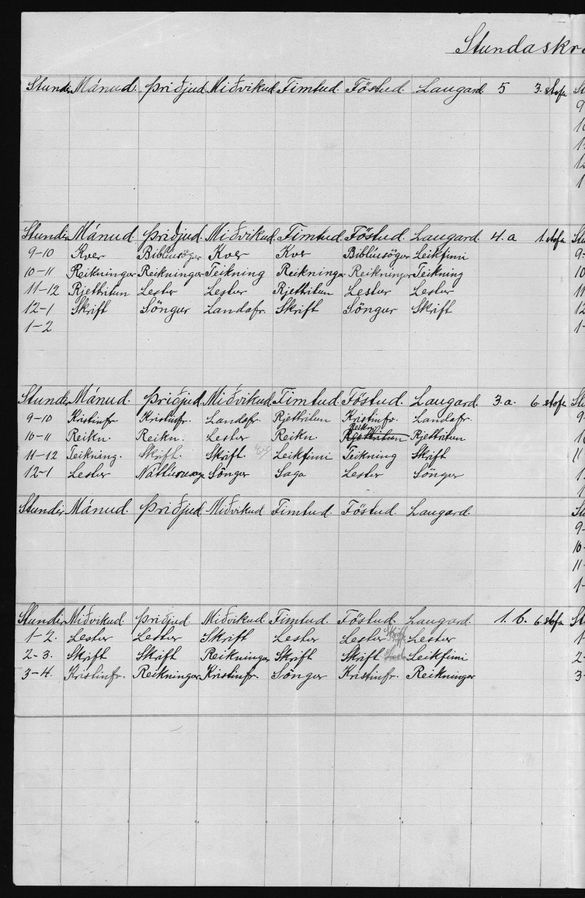 Stundaskr
Stundir Mánud. Þriðjud. Miðvikud. Fimtud. Föstud. Laugard. 5 3. stofa
Stundir Mánud. Þriðjud. Miðvikud. Fimtud. Föstud. Laugard. 4. a 1. stofa
9-10 Kver Biblíusögur Kver Kver Biblíusögur Leikfimi
10-11 Reikningur Reikningur Teikning Reikningur Reikningur Teikning
11-12 Rjettritun Lestur Lestur Rjettritun Lestur Lestur
12-1 Skrift Söngur Landafr. Skrift Söngur Skrift
1-2
Stundir Mánud. Þriðjud. Miðvikud. Fimtud. Föstud. Laugard. 3. a. 6 stofa
9-10 Kristinfr. Kristinfr. Landafr. Rjettritun Kristinfr. Landafr.
10-11 Reikn. Reikn. Lestur Reikn. Rjettritun Rjettritun
11-12 Teikning. Skrift. Skrift Leikfimi Teikning Skrift
12-1 Lestur Söngur Saga Lestur Söngur
Stundir Mánud. Þriðjud. Miðvikud. Fimtud. Föstud. Laugard.
Stundir Miðvikud. Þriðjud. Miðvikud. Fimtud. Föstud. Laugard. 1. b. 6 stofa
1-2. Lestur Lestur Skrift Lestur Lestur Skrift Lestur
2-3. Skrift Skrift Reikningur Skrift Skrift Leikfimi
3-4. Kristinfr. Reikningur Kristinfr. Söngur Kristinfr. Reikningur